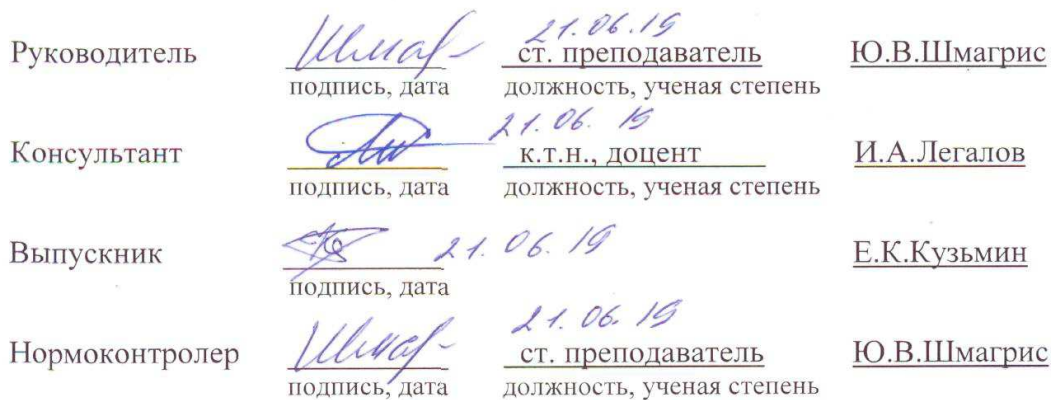 21.06.19
Руководитель Шмаг ст. преподаватель Ю.В.Шмагрис
подпись, дата должность, ученая степень
21.06.19
Консультант к.т.н., доцент И.А.Легалов
подпись, дата должность, ученая степень
Выпускник 21.06.19 Е.К.Кузьмин
подпись, дата
21.06.19
Нормоконтролер Шмаг ст. преподаватель Ю.В.Шмагрис
подпись, дата должность, ученая степень